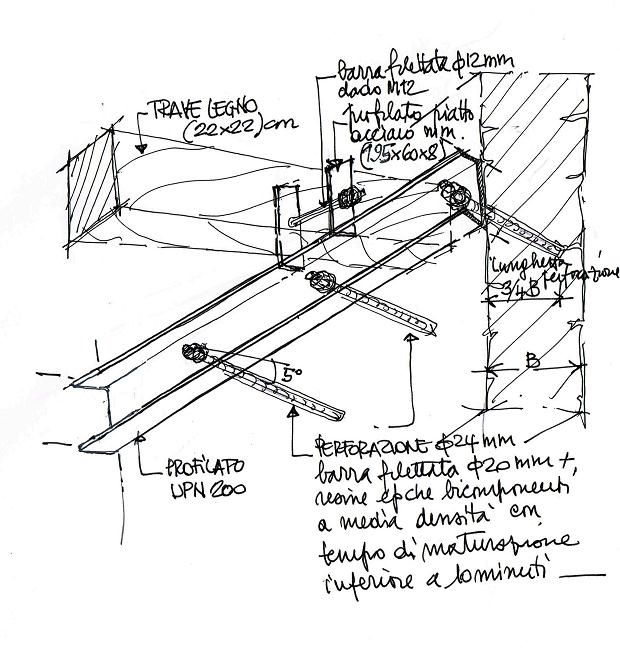 barra filettata ϕ12mm
dado M12
profilato piatto
acciaio mm.
(195x60x8)
TRAVE LEGNO
(22x22)cm
lunghezza
perforazione
3/4B
B
5°
PROFILATO
UPN 200
PERFORAZIONE ϕ24mm
barra filettata ϕ20mm +
resine ep.che bicomponenti
a media densità con
tempo di maturazione
inferiore a minuti